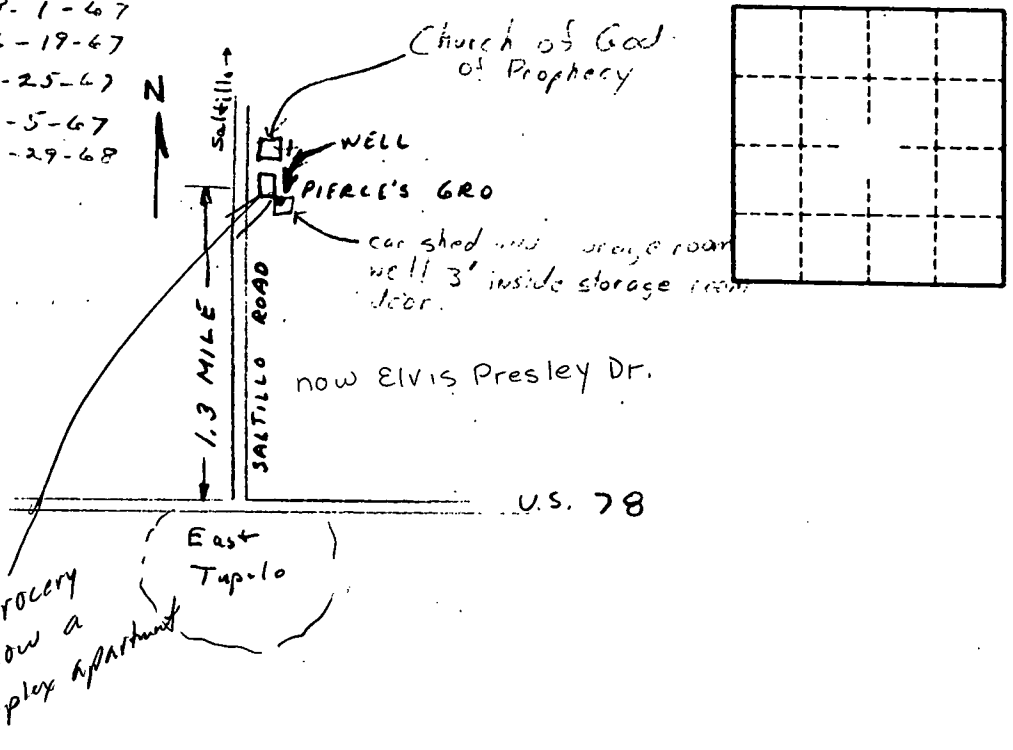 - 1 - 67
- 19 - 67
- 25 - 67
- 5 - 67
- 29 - 68
N
Saltillo
Church of God
of Prophecy
WELL
PIERCE'S GRO
car shed and storage room
well 3' inside storage room
door.
1.3 MILE
SALTILLO ROAD
now Elvis Presley Dr.
U.S. 78
East
Tupelo
rocery
ow a
plex apartment